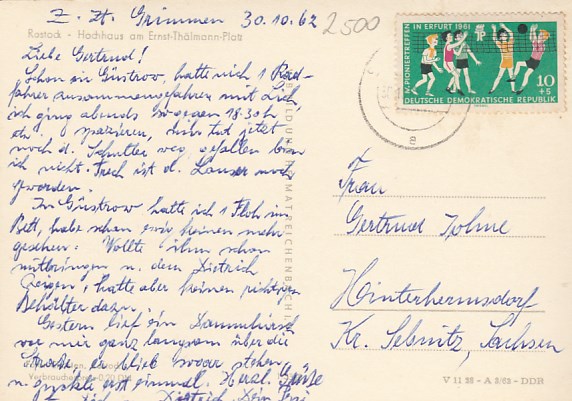 Z. Zt. Grimmen 30.10.62
2500
Rostock - Hochhaus am Ernst-Thälmann-Platz
Liebe Gertrud!
Schon in Güstrow, hatte mich 1 Rad-
fahrer zusammengefahren mit Licht
ich ging abends so gegen 18.30h
etw. spazieren, tut jetzt
noch d. Schulter weg, gefallen bin
ich nicht. Frech ist d. Lauser noch
geworden.
In Güstrow hatte ich 1 Floh im
Bett, habe schon keinen mehr
gesehen. Wollte ihn schon
mitbringen u. dem Dietrich
zeigen, hatte aber keinen richtigen
Behälter dazu.
Gestern lief ein Dammhirsch
vor mir ganz langsam über die
Straße, er blieb sogar stehen
u. guckte erst einmal. Herzl. Grüße
Dietrich Dein
Verbraucherpreis 0,20 DM
BILD UND HEIMAT REICHENBACH I.
IV. PIONIERTREFFEN IN ERFURT 1961
10
+5
DEUTSCHE DEMOKRATISCHE REPUBLIK
Frau
Gertrud
Hinterhermsdorf
Kr. Sebnitz, Sachsen
V 11 28 - A 3/62 - DDR